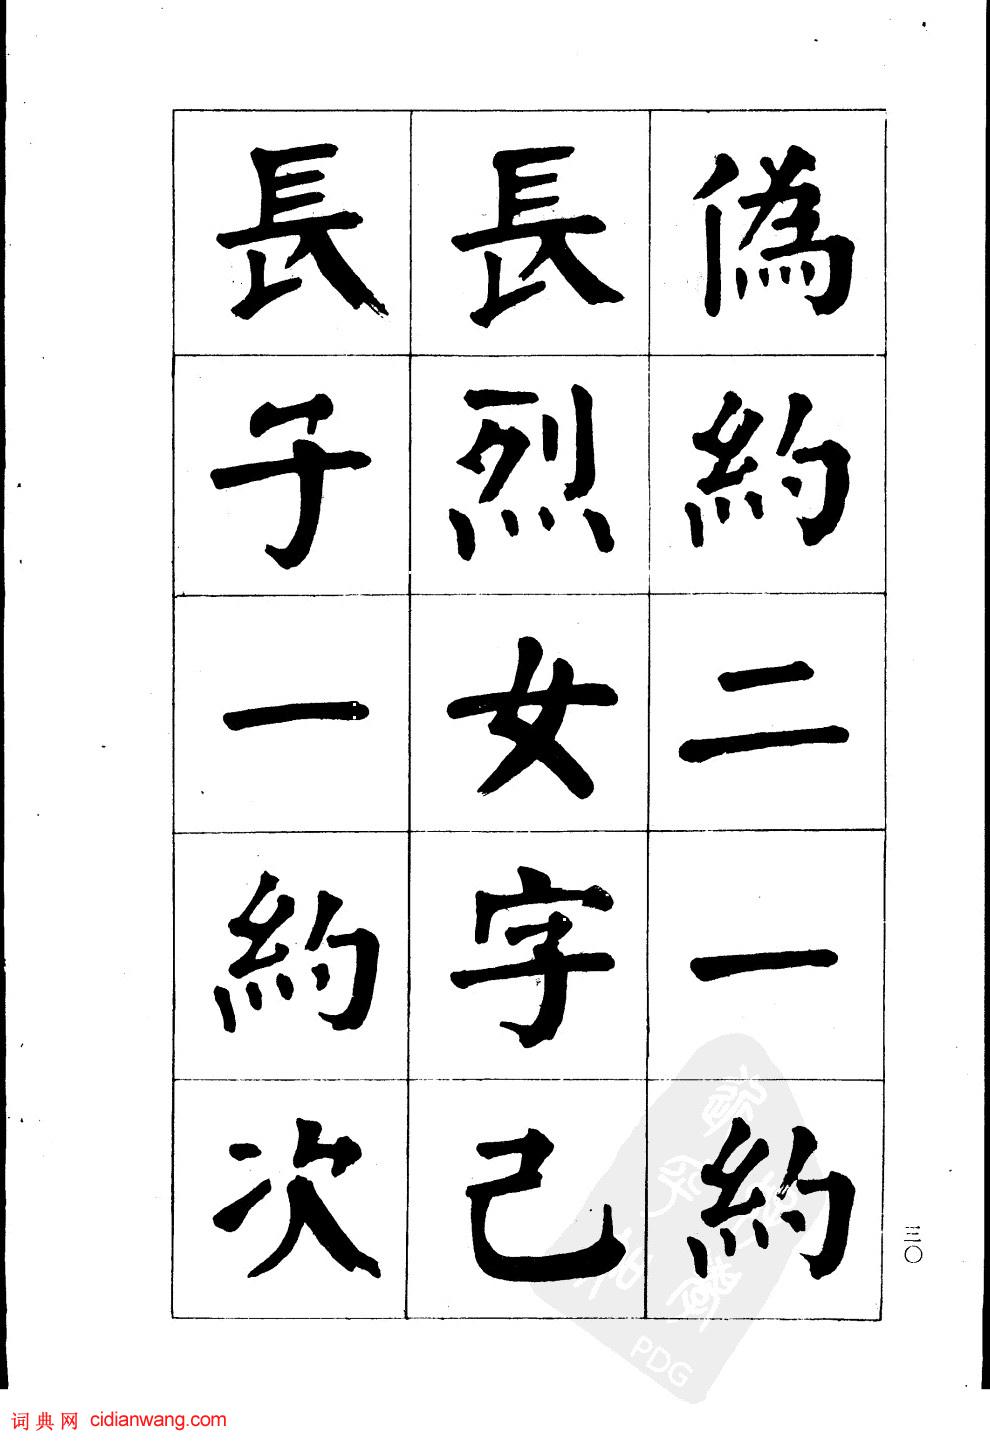 偽約二一約
長烈女字己
長子一約次
三〇
PDG
词典网 cidianwang.com